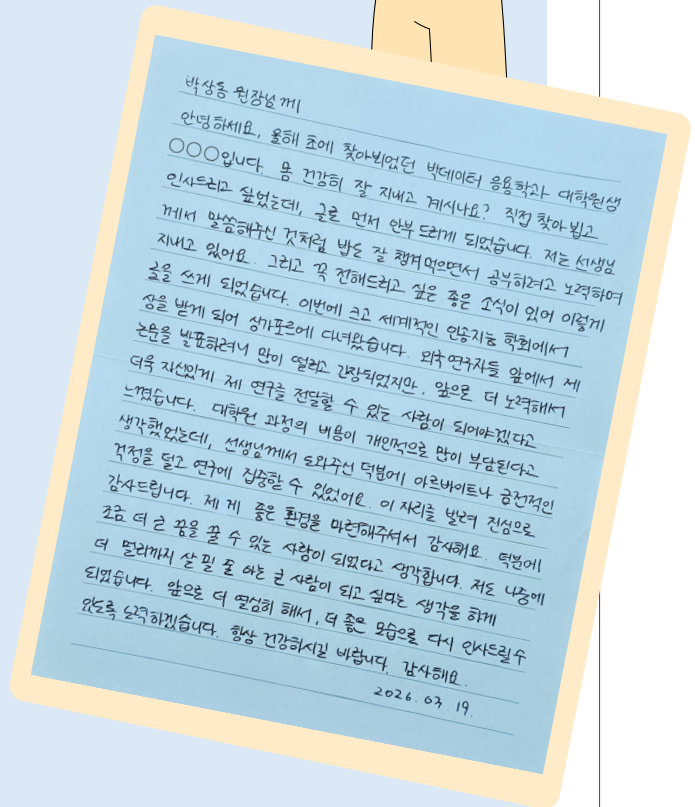 박상동 원장님께
안녕하세요, 올해 초에 찾아뵈었던 빅데이터 응용학과 대학원생
○○○입니다. 몸 건강히 잘 지내고 계시나요? 직접 찾아 뵙고
인사드리고 싶었는데, 글로 먼저 안부 드리게 되었습니다. 저는 선생님
께서 말씀해주신 것처럼 밥도 잘 챙겨먹으면서 공부하려고 노력하며
지내고 있어요. 그리고 꼭 전해드리고 싶은 좋은 소식이 있어 이렇게
글을 쓰게 되었습니다. 이번에 크고 세계적인 인공지능 학회에서
상을 받게 되어 싱가포르에 다녀왔습니다. 외국 연구자들 앞에서 제
논문을 발표하려니 많이 떨리고 긴장되었지만, 앞으로 더 노력해서
더욱 자신있게 제 연구를 전달할 수 있는 사람이 되어야겠다고
느꼈습니다. 대학원 과정의 비용이 개인적으로 많이 부담된다고
생각했었는데, 선생님께서 도와주신 덕분에 아르바이트나 금전적인
걱정을 덜고 연구에 집중할 수 있었어요. 이 자리를 빌려 진심으로
감사드립니다. 제게 좋은 환경을 마련해주셔서 감사해요. 덕분에
조금 더 큰 꿈을 꿀 수 있는 사람이 되었다고 생각합니다. 저도 나중에
더 멀리까지 살필 줄 아는 큰 사람이 되고 싶다는 생각을 하게
되었습니다. 앞으로 더 열심히 해서, 더 좋은 모습으로 다시 인사드릴 수
있도록 노력하겠습니다. 항상 건강하시길 바랍니다. 감사해요.
2026. 03. 19.